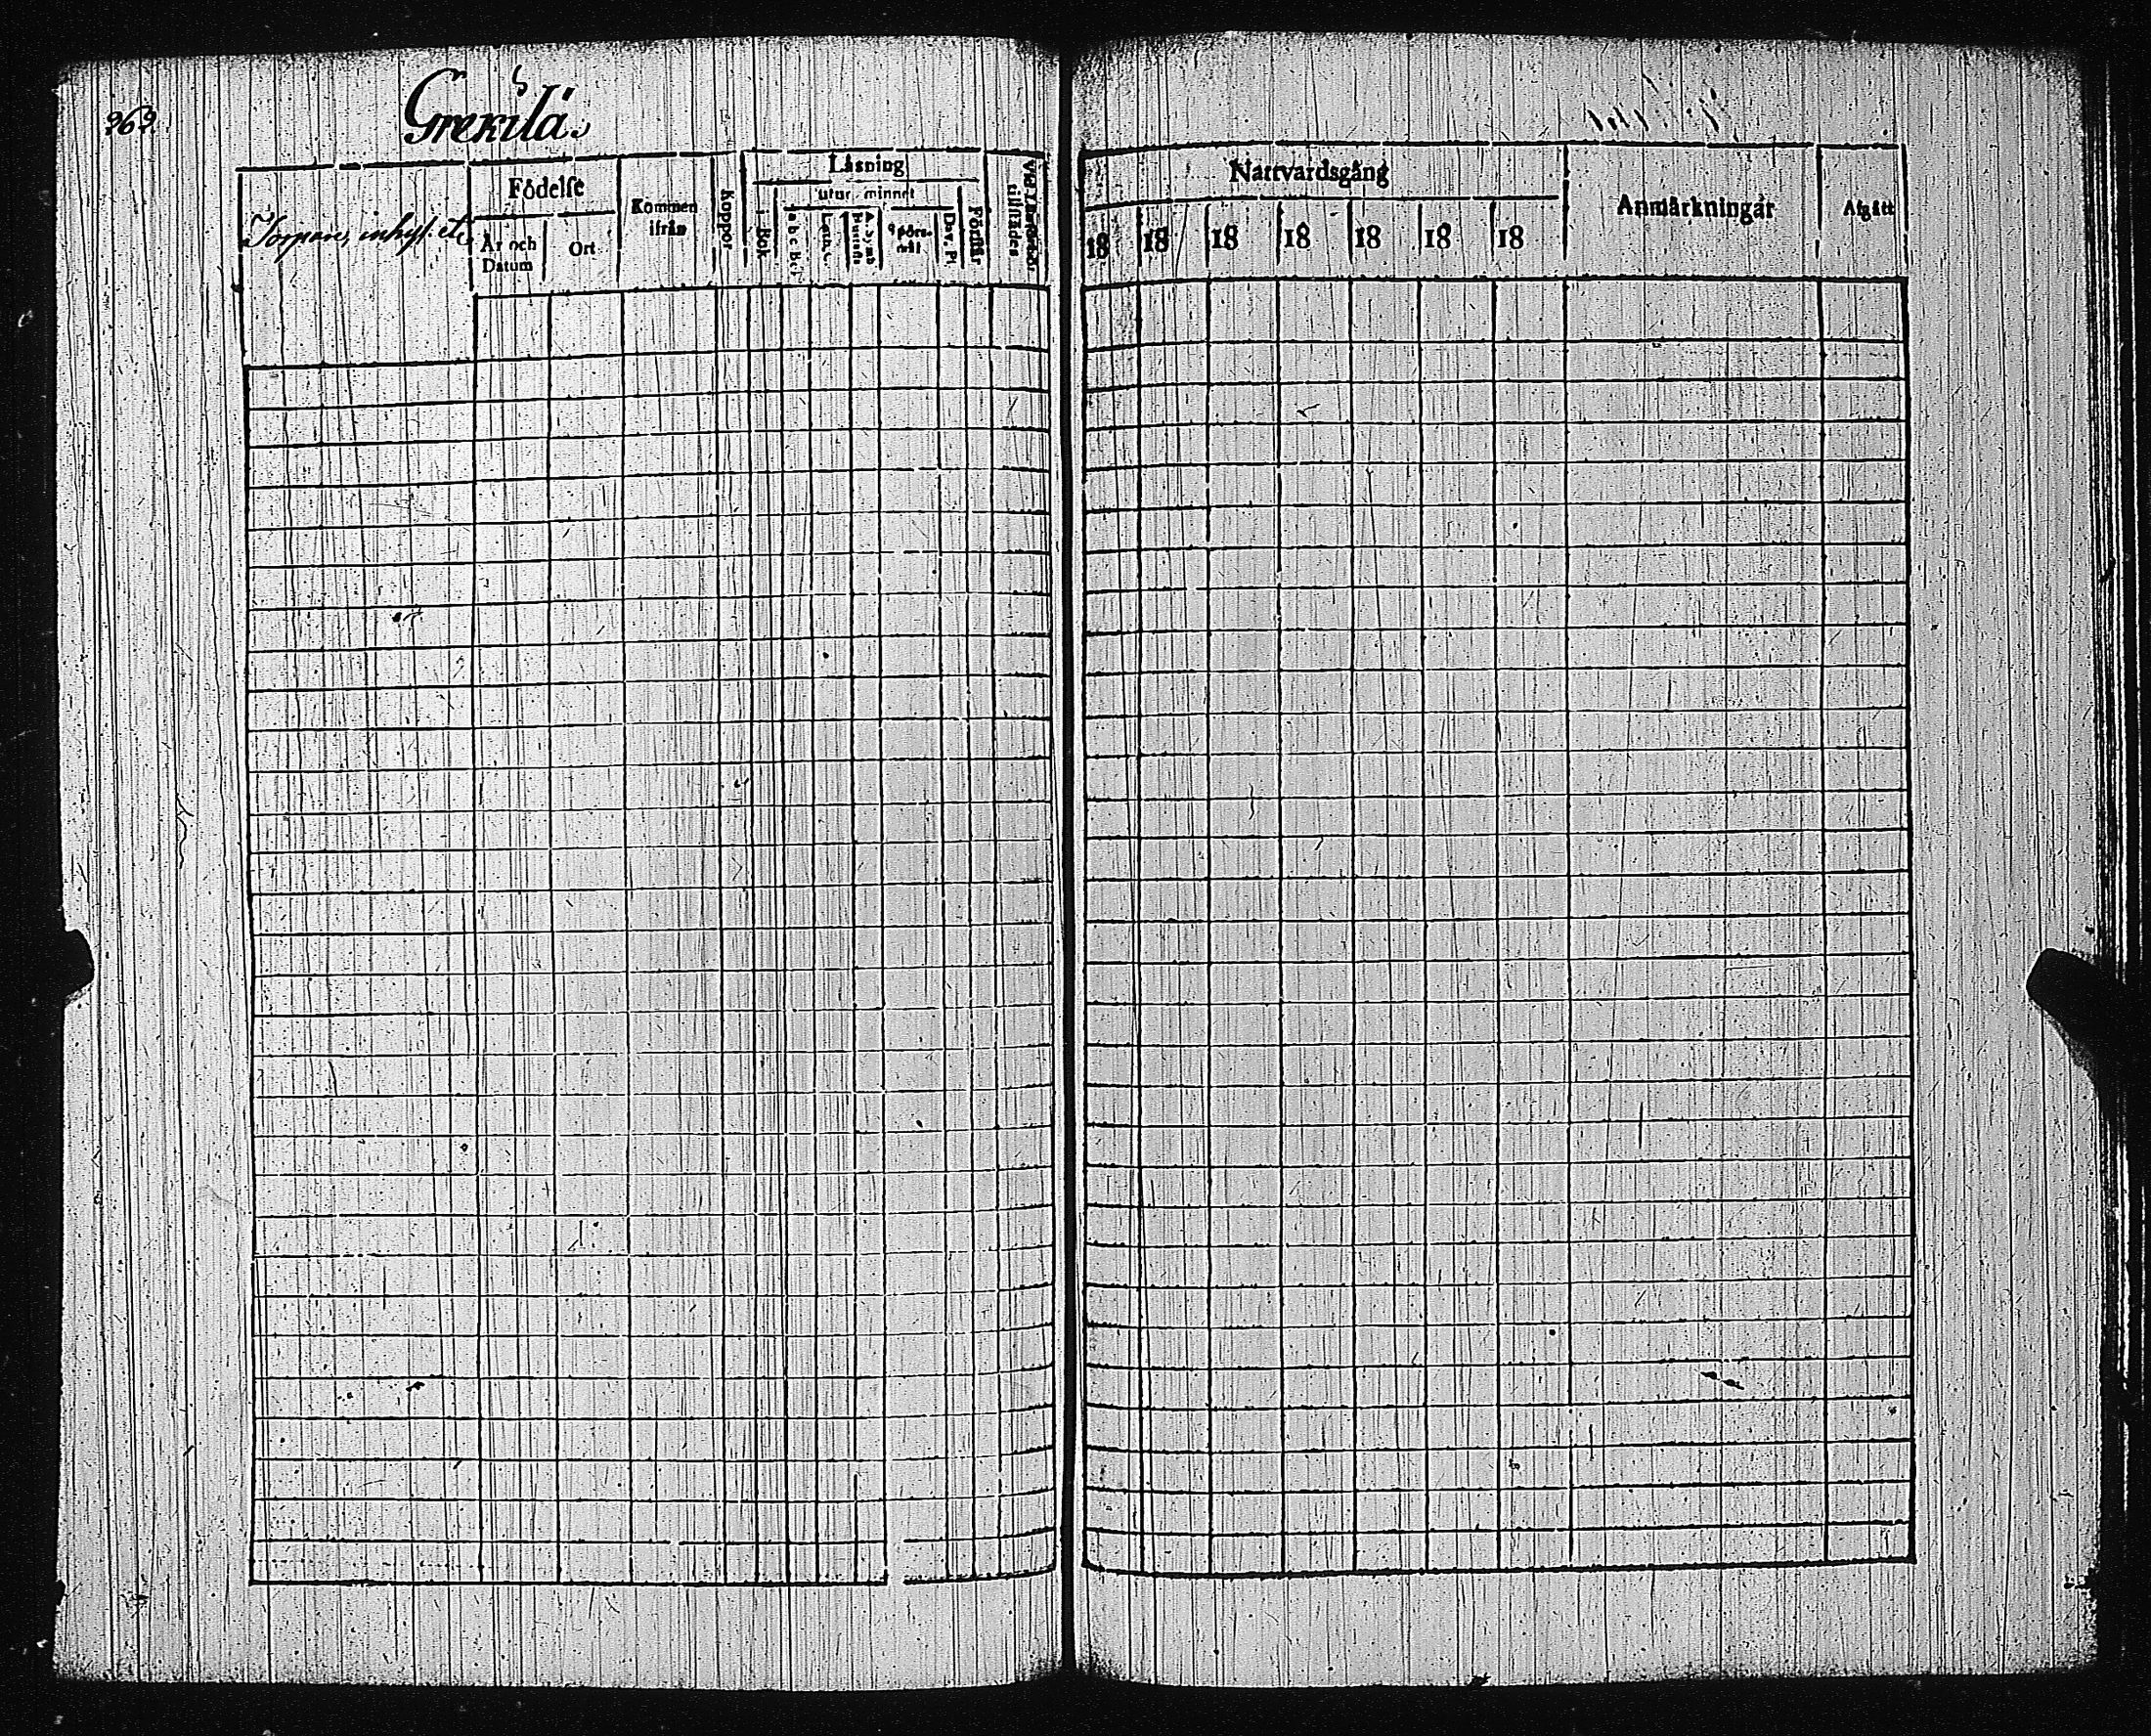 262.
Grekilä.
Torpare, inhys. etc
Födelse
År och Datum
Ort
Kommen ifrån
Koppor
Läsning
i Bok
utur minnet
a b c Bok
Luth. C.
Hustafla
Spörsmål
Dav. Ps.
Förstår
Vid Läseförhör tillstädes
Nattvardsgång
18 18 18 18 18 18 18
Anmärkningar
Afgått